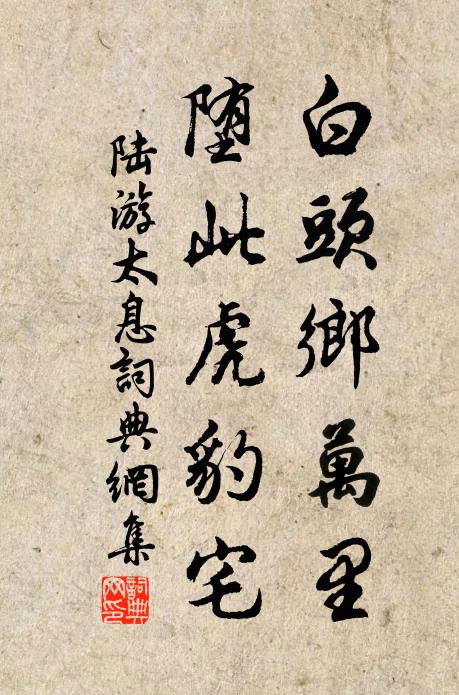 白頭鄉萬里
堕此虎豹宅
陆游太息詞典網集
詞典网印